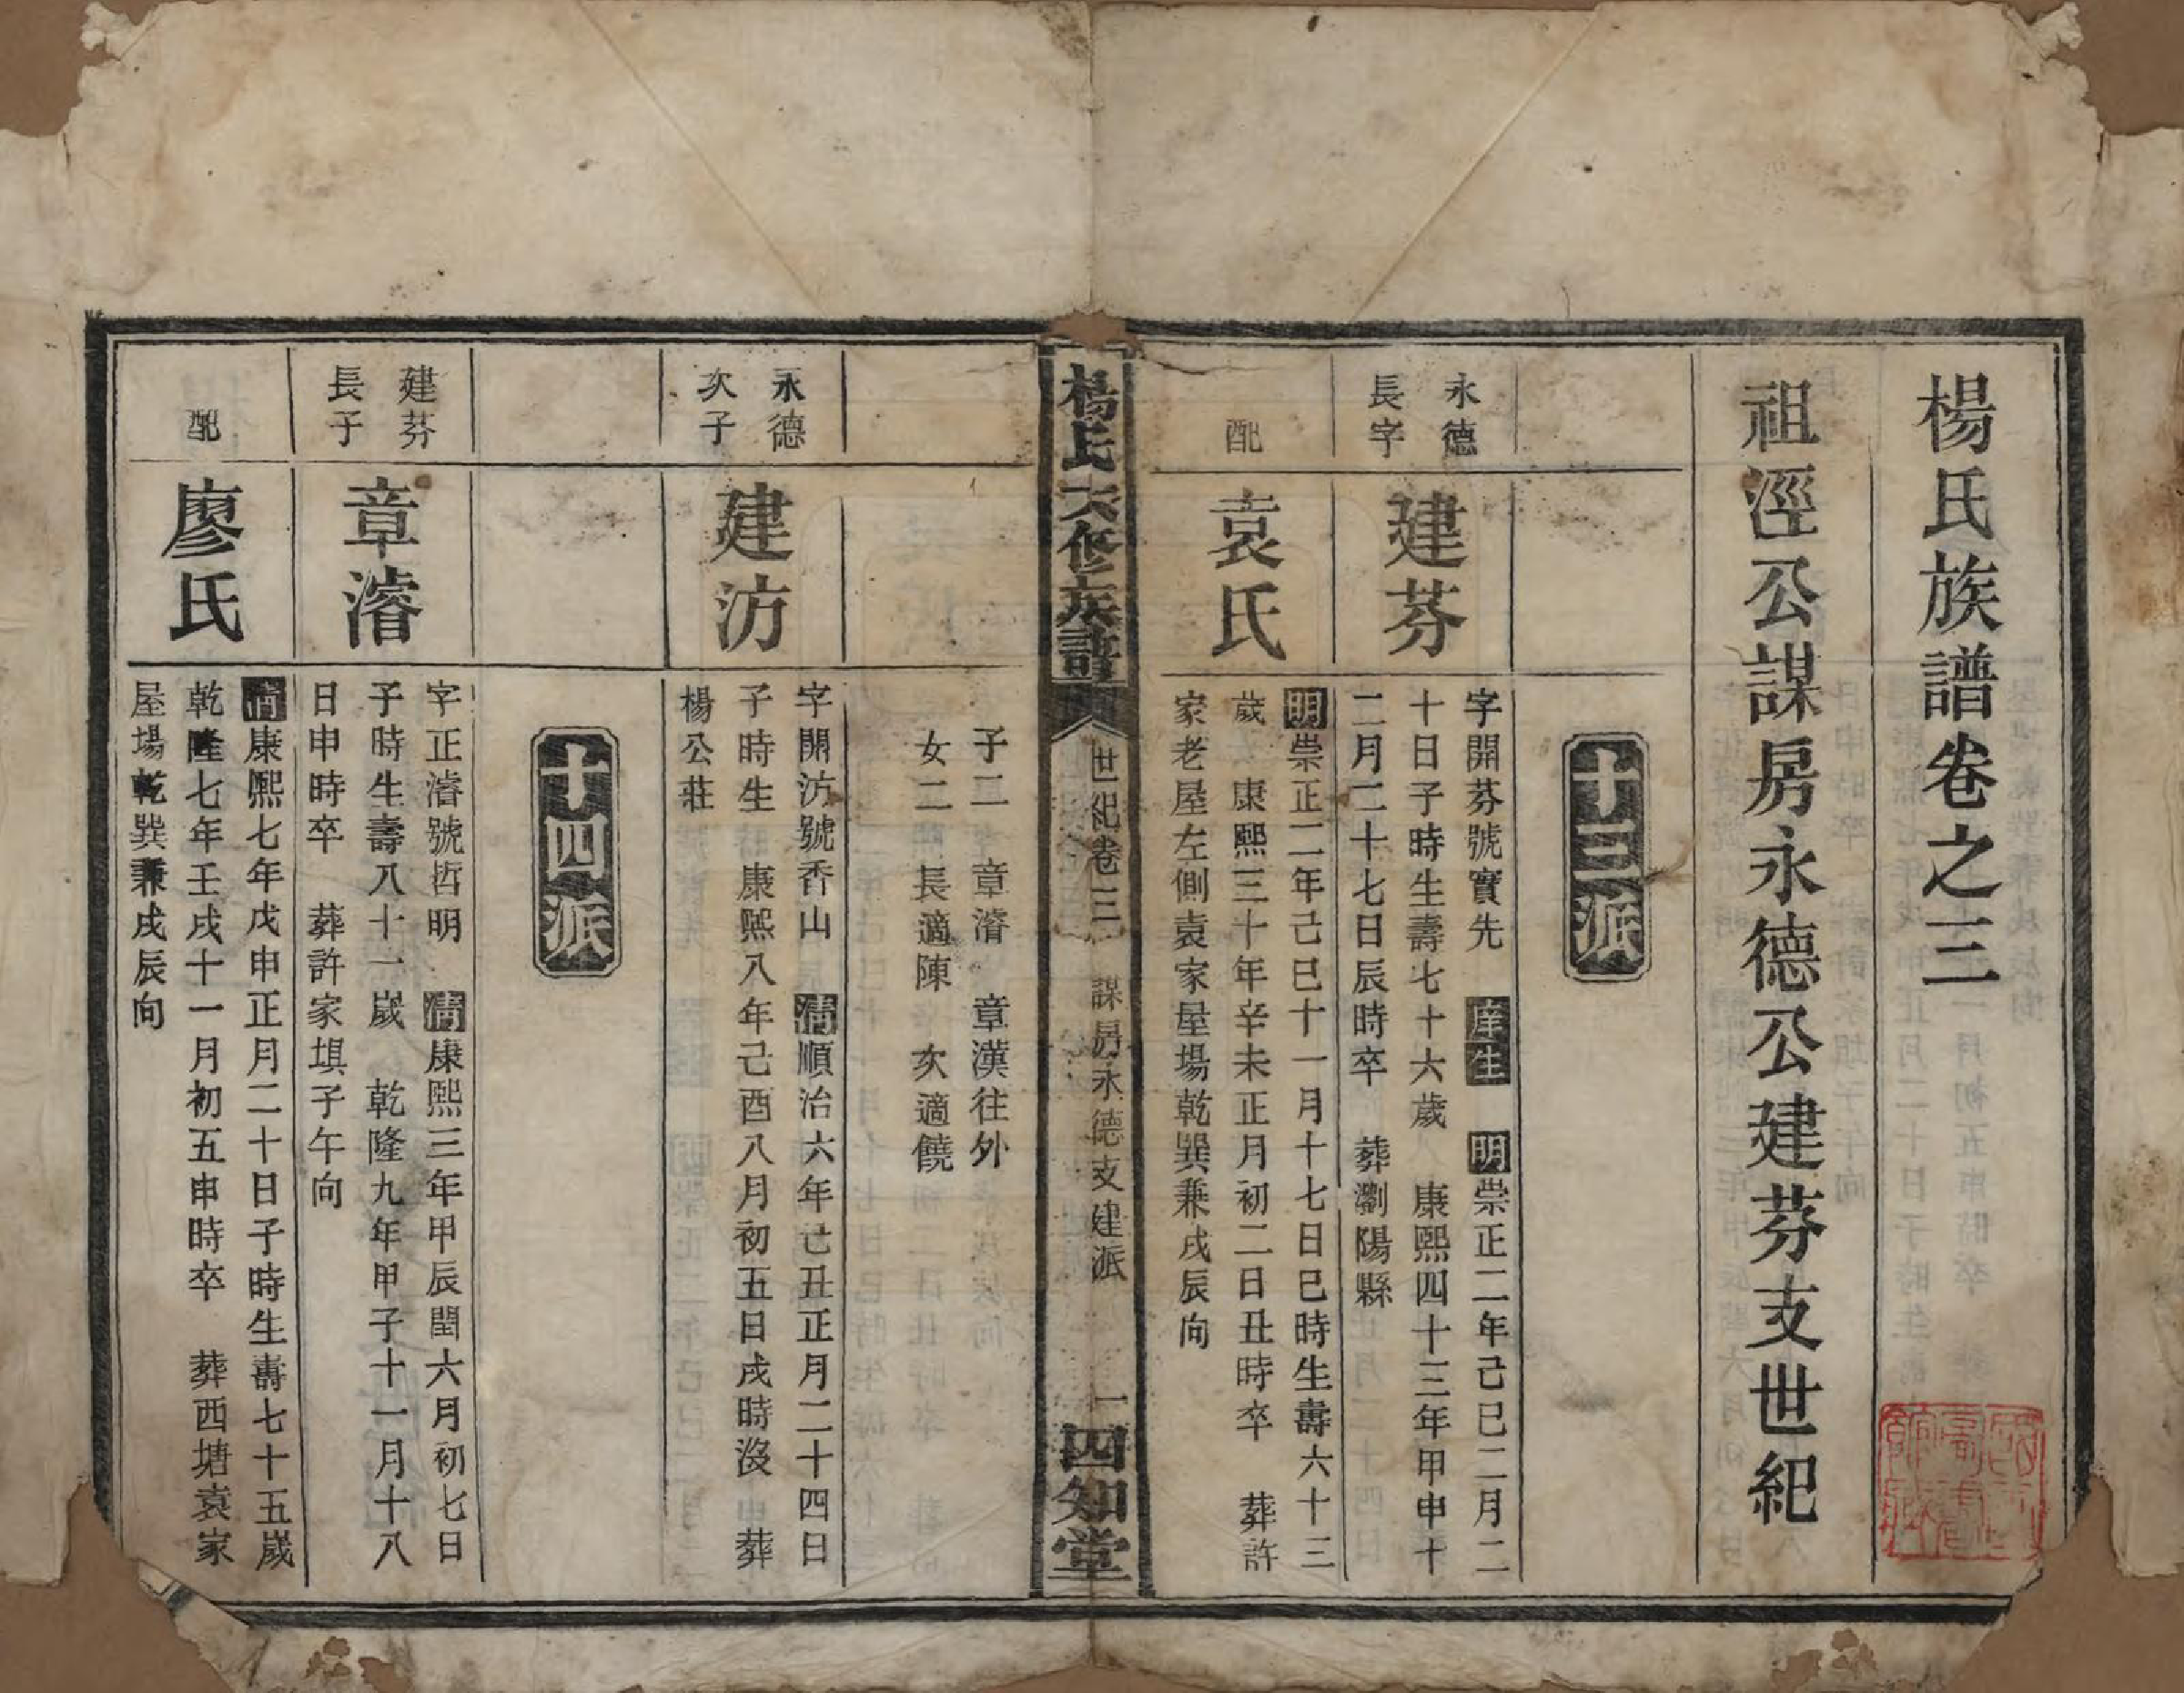 楊氏族譜卷之三
祖涇公謀房永德公建芬支世紀
十三派
永德
長字
建芬
字開芬號實先　庠生　明崇正二年己巳二月二
十日子時生壽七十六歲　康熙四十三年甲申十
二月二十七日辰時卒　葬瀏陽縣
配
袁氏
明崇正二年己巳十一月十七日巳時生壽六十三
歲　康熙三十年辛未正月初二日丑時卒　葬許
家老屋左側袁家屋場乾巽兼戌辰向
楊氏六修族譜
世紀卷三　謀房永德支建派　一
四知堂
子二　章濬　章漢往外
女二　長適陳　次適饒
永德
次子
建汸
字開汸號香山　清順治六年己丑正月二十四日
子時生　康熙八年己酉八月初五日戌時沒　葬
楊公莊
十四派
建芬
長子
章濬
字正濬號哲明　清康熙三年甲辰閏六月初七日
子時生壽八十一歲　乾隆九年甲子十一月十八
日申時卒　葬許家塅子午向
配
廖氏
清康熙七年戊申正月二十日子時生壽七十五歲
乾隆七年壬戌十一月初五申時卒　葬西塘袁家
屋場乾巽兼戌辰向